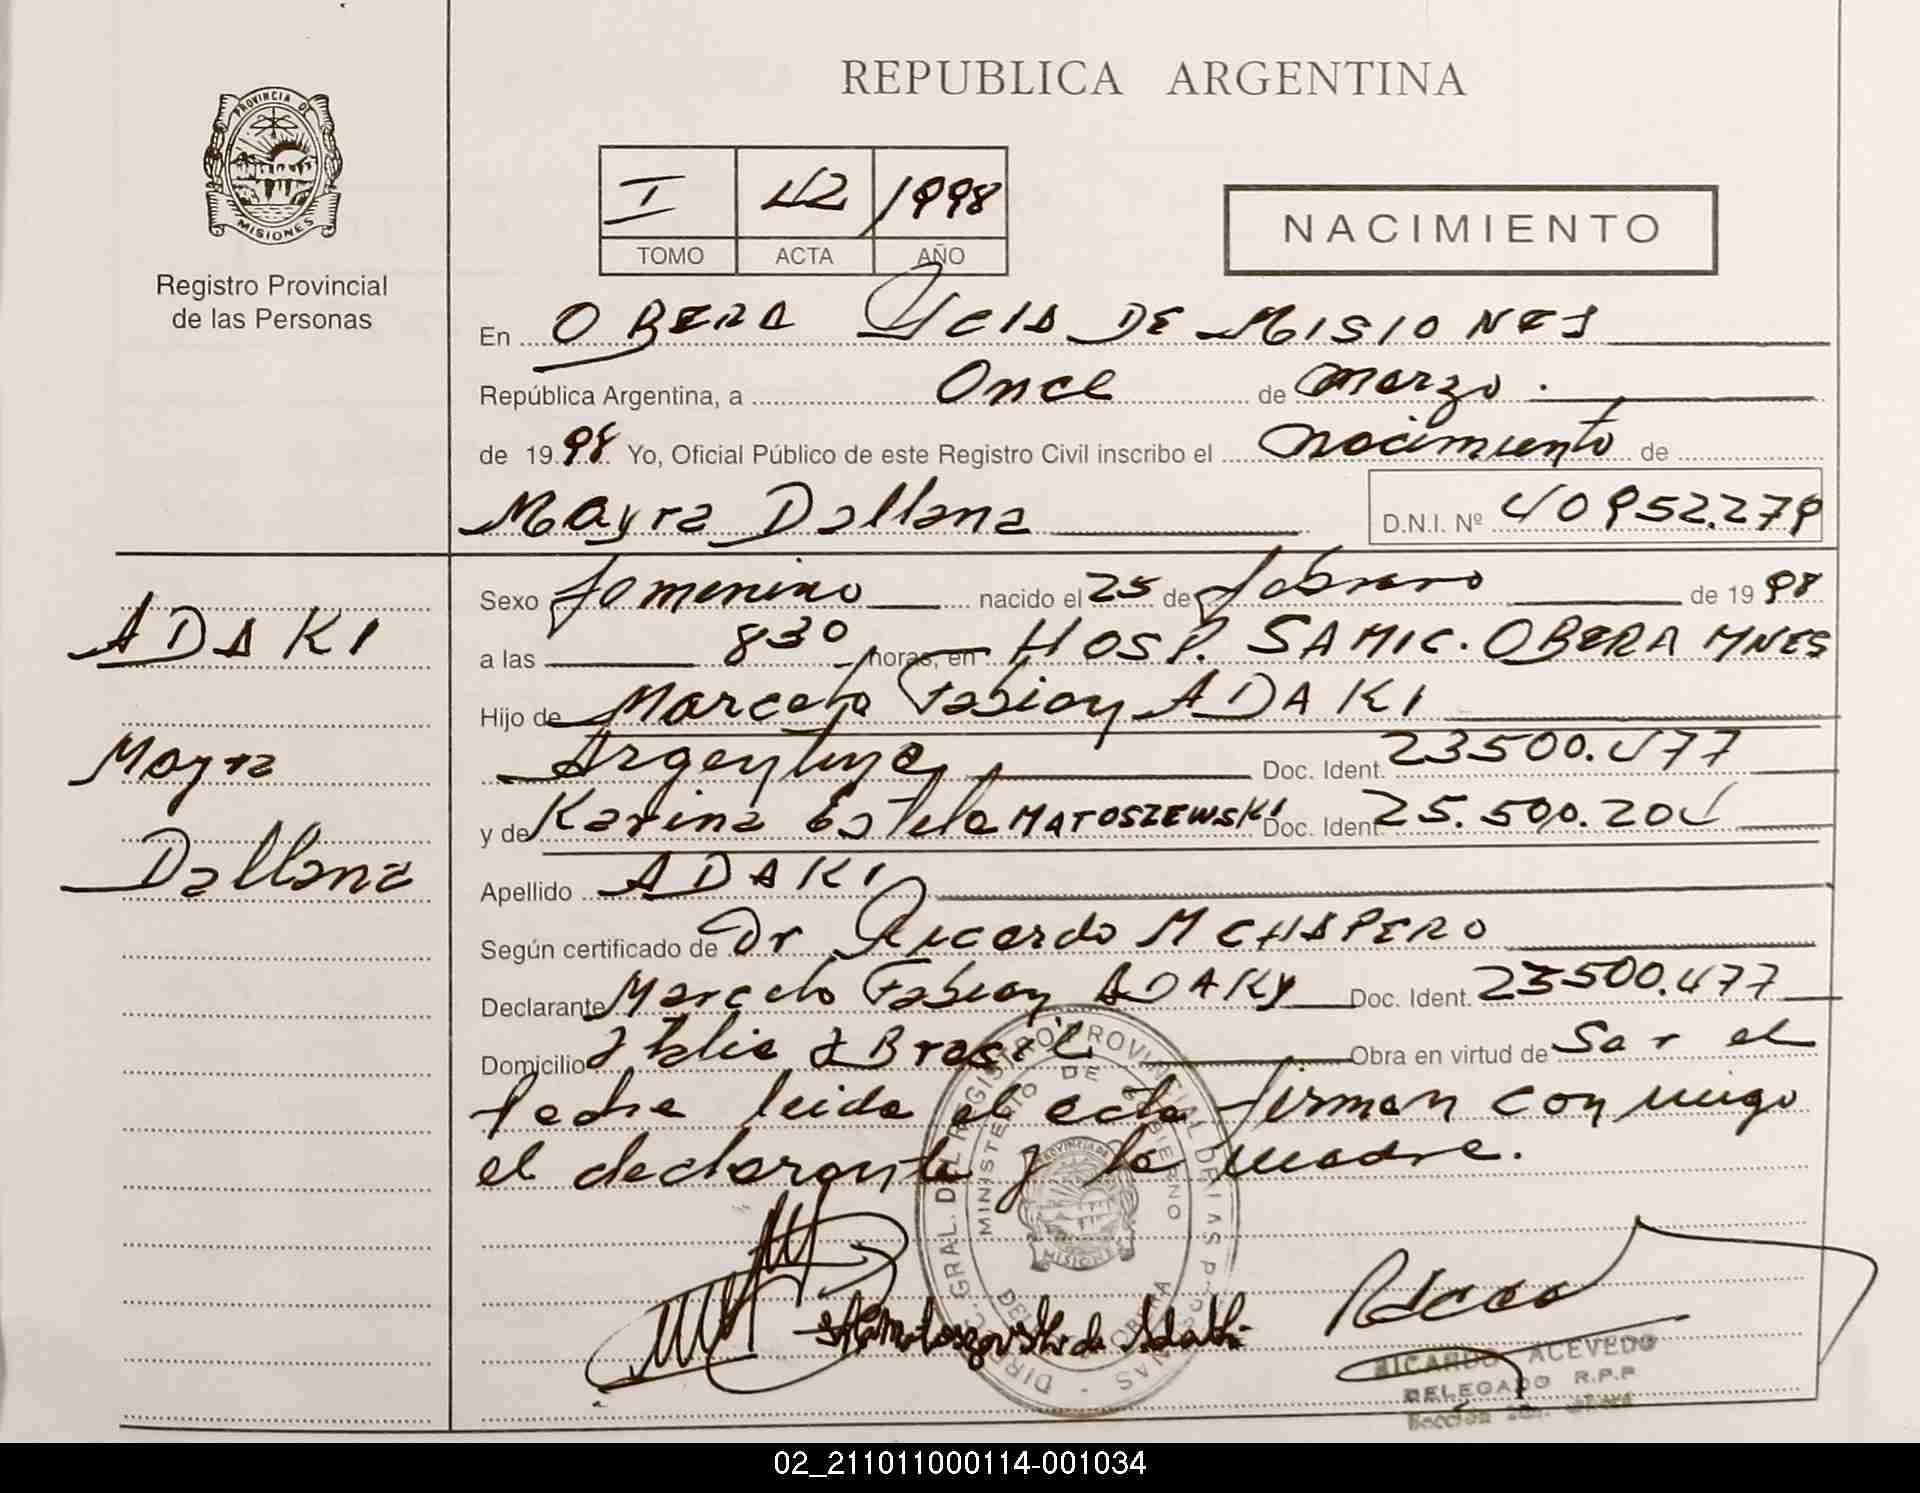 REPUBLICA ARGENTINA
PROVINCIA DE
MISIONES
Registro Provincial
de las Personas
I 42 1998
TOMO ACTA AÑO
NACIMIENTO
En OBERA Pcia DE MISIONES
República Argentina, a Once de marzo.
de 1998 Yo, Oficial Público de este Registro Civil inscribo el nacimiento de
Mayra Dallana D.N.I. Nº 40952.279
ADAKI
Mayra
Dallana
Sexo femenino nacido el 25 de febrero de 1998
a las 830 horas, en HOSP. SAMIC. OBERA MNES
Hijo de Marcelo Fabian ADAKI
Argentina Doc. Ident. 23500.477
y de Karina Estela MATOSZEWSKI Doc. Ident. 25.500.204
Apellido ADAKI
Según certificado de Dr Ricardo M CHAPERO
Declarante Marcelo Fabian ADAKY Doc. Ident. 23500.477
Domicilio Italia y Brasil Obra en virtud de Ser el
Padre leida el acta firman conmigo
el declarante y la madre.
DIREC. GRAL. DEL REGISTRO PROVINCIAL DE LAS PERSONAS
MINISTERIO DE GOBIERNO
MISIONES
OBERA
RICARDO ACEVEDO
DELEGADO R.P.P
02_211011000114-001034